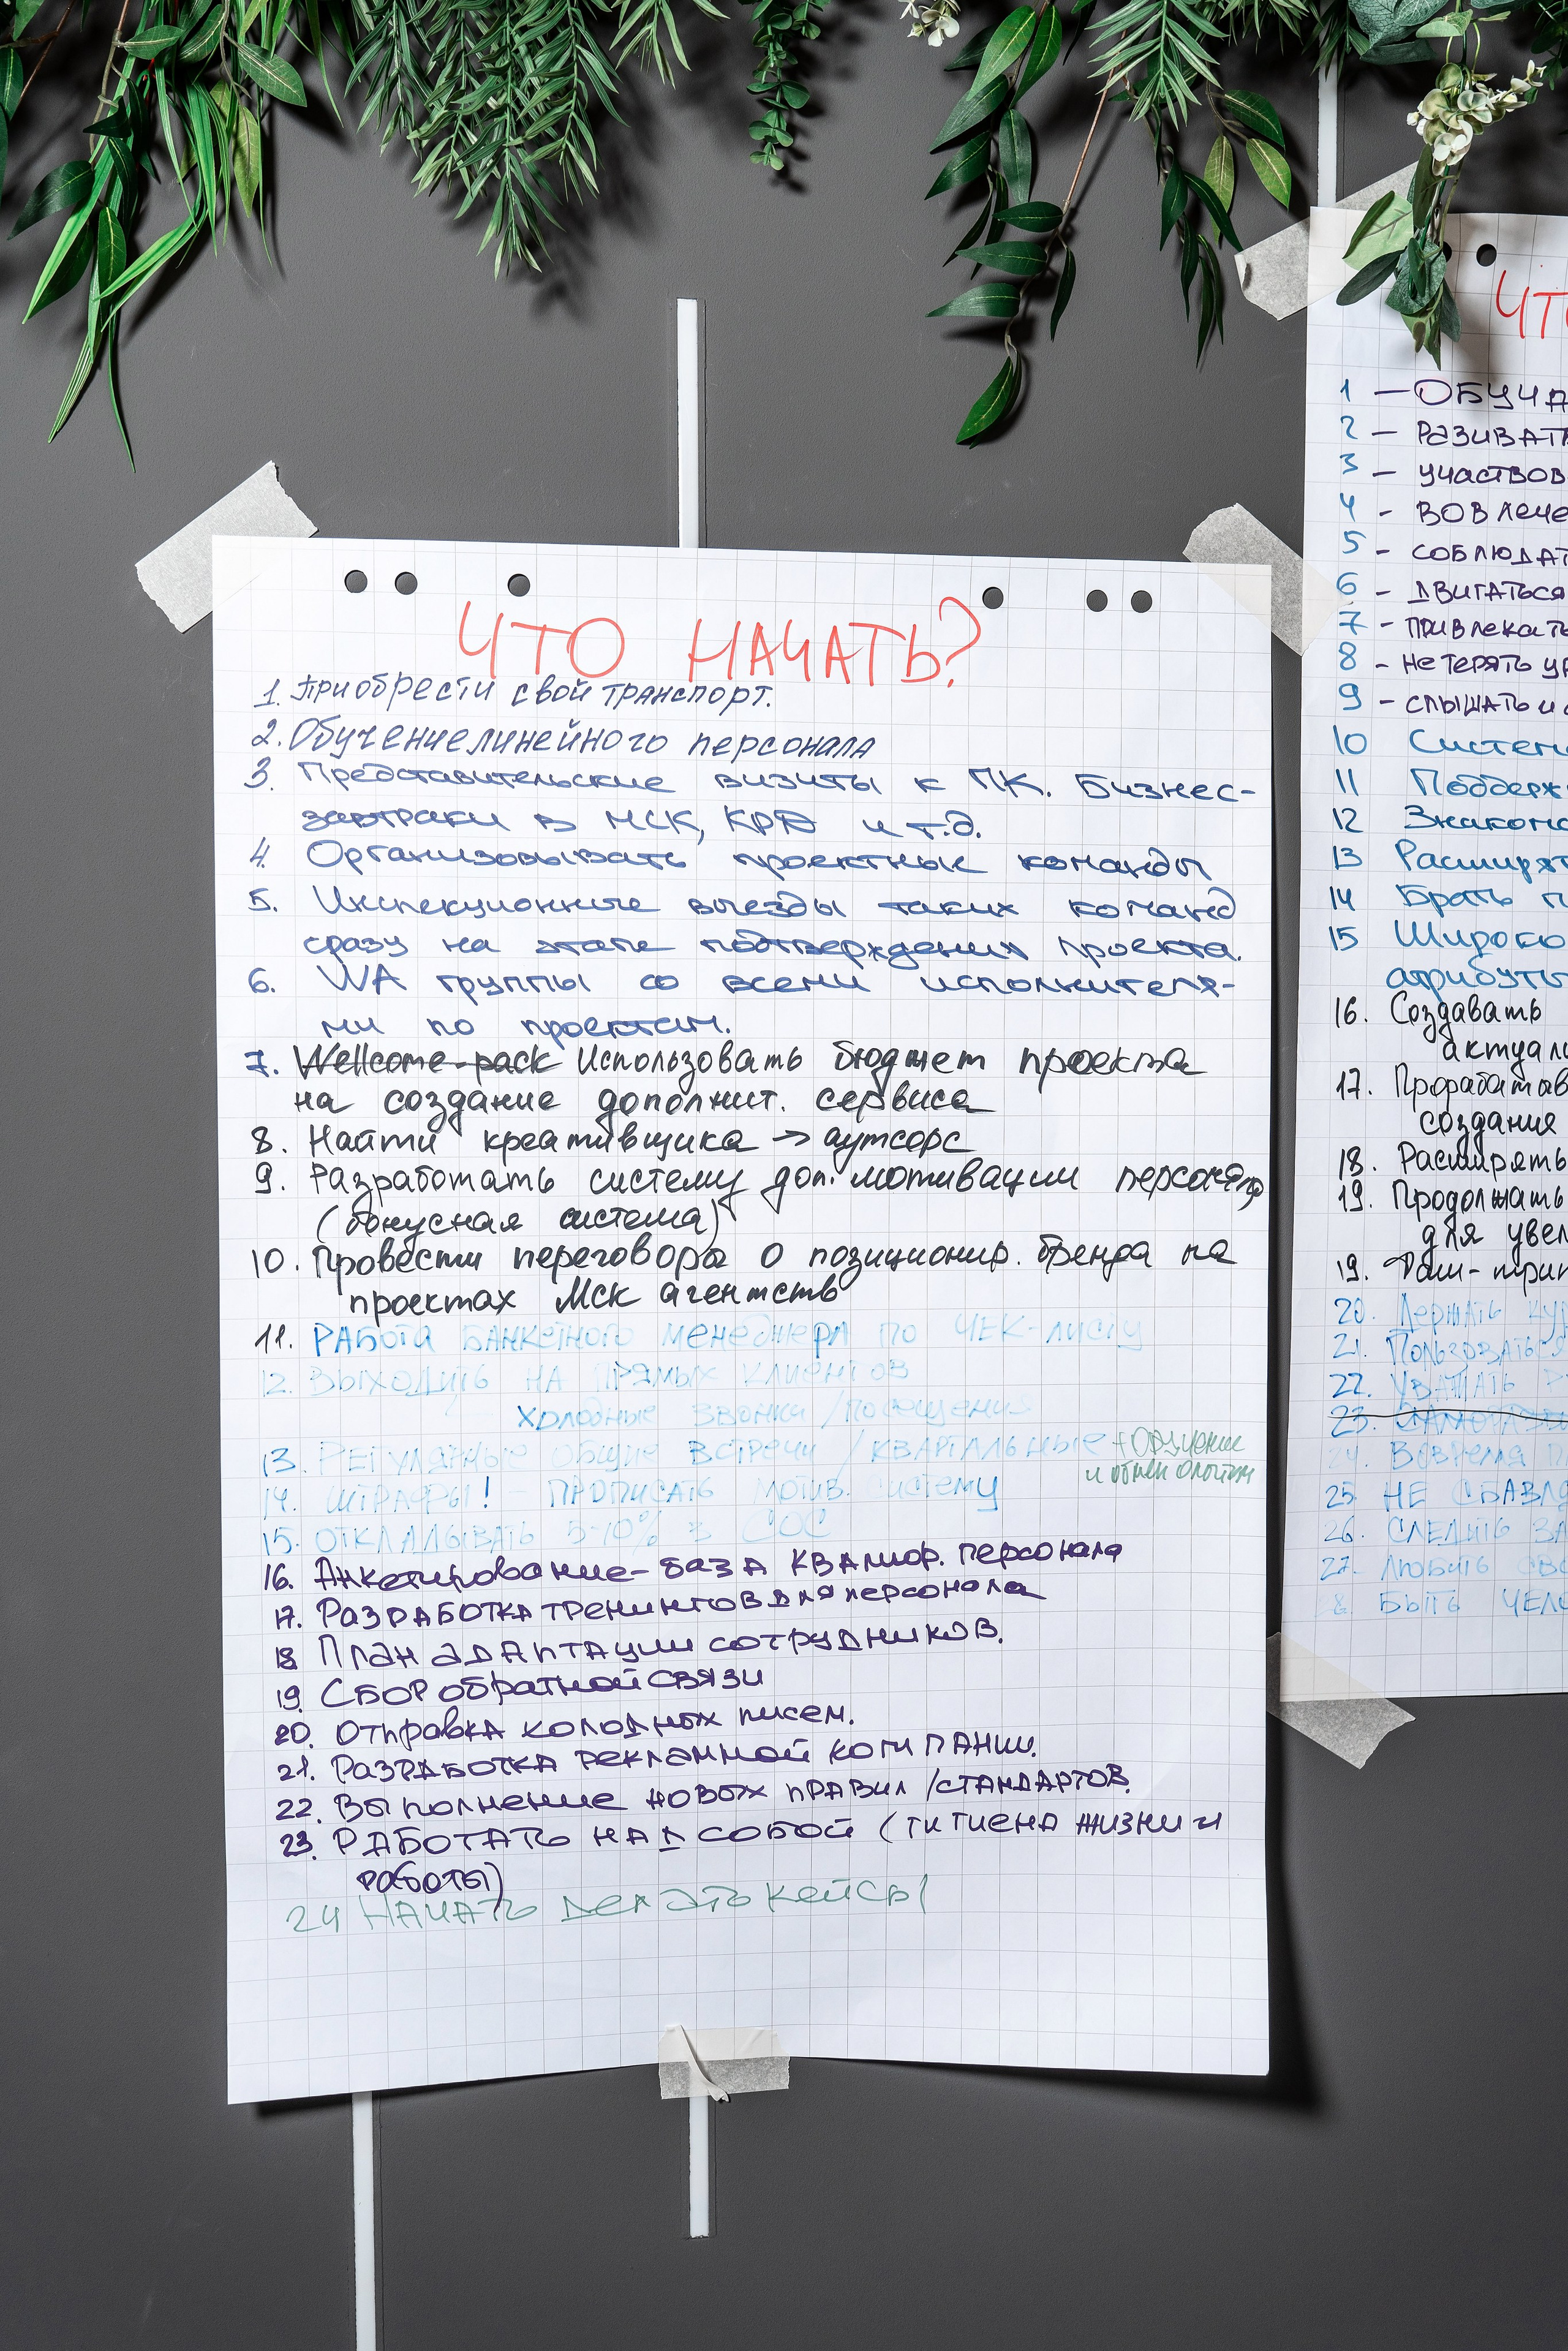 ЧТО НАЧАТЬ?
1. Приобрести свой транспорт.
2. Обучение линейного персонала
3. Представительские визиты к ПК. Бизнес-
завтраки в МСК, КРД и т.д.
4. Организовывать проектные команды
5. Инспекционные выезды таких команд
сразу на этапе подтверждения проекта.
6. WA группы со всеми исполнителя-
ми по проектам.
7. Wellcome-pack Использовать бюджет проекта
на создание дополнит. сервиса
8. Найти креативщика → аутсорс
9. Разработать систему доп. мотивации персонала
(бонусная система)
10. Провести переговоры о позиционир. бренда на
проектах Мск агентств
11. РАБОТА БАНКЕТНОГО МЕНЕДЖЕРА ПО ЧЕК-ЛИСТУ
12. ВЫХОДИТЬ НА ПРЯМЫХ КЛИЕНТОВ
ХОЛОДНЫЕ ЗВОНКИ / ПОСЕЩЕНИЯ
13. РЕГУЛЯРНЫЕ ОБЩИЕ ВСТРЕЧИ / КВАРТАЛЬНЫЕ + Обучение
и обмен опытом
14. ШТРАФЫ! ПРОПИСАТЬ МОТИВ. СИСТЕМУ
15. ОТКЛАДЫВАТЬ 5-10% в СОС
16. Анкетирование - база квалиф. персонала
17. Разработка тренингов для персонала
18 План адаптации сотрудников.
19. Сбор обратной связи
20. Отправка холодных писем.
21. Разработка рекламной компании.
22. Выполнение новых правил / стандартов.
23. Работать над собой (гигиена жизни и
работы)
24 Начать делать кейсы
ЧТО
1 — ОБУЧА
2 — РАЗИВАТ
3 — участвов
4 - вовлече
5 - СОБЛЮДАТ
6 - ДВИГАТЬСЯ
7 - привлекать
8 - не терять ур
9 - слышать и с
10 Систем
11 Поддерж
12 Знаком
13 Расширят
14 Брать п
15 Широко
атрибуты
16. Создавать
актуал
17. Проработав
создания
18. Расширять
19. Продолжать
для увел
19. Фам-трип
20. Держать ку
21. Пользоваться
22. УВАЖАТЬ Р
23.
24. Вовремя п
25. НЕ СБАВЛ
26. СЛЕДИТЬ ЗА
27. ЛЮБИТЬ СВО
28. БЫТЬ ЧЕЛ